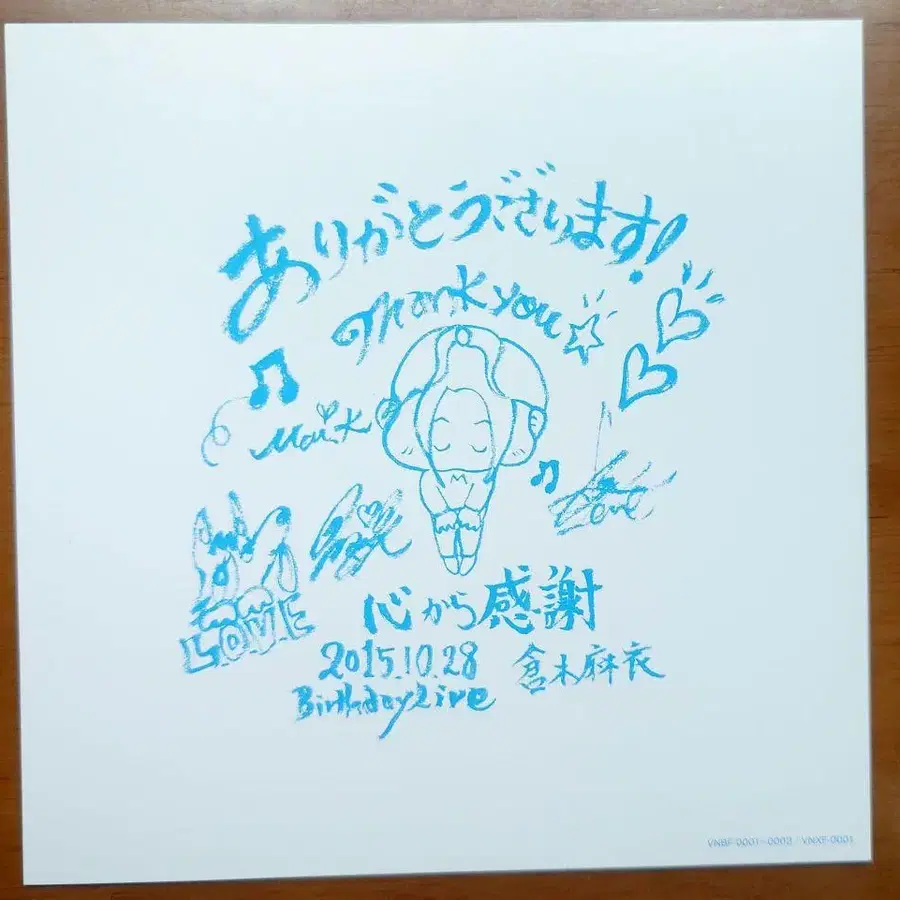 ありがとうございます!
Thank you
Mai.K
LOVE
Love
心から感謝
2015.10.28 倉木麻衣
Birthday Live
VNBF-0001~0002/VNXF-0001